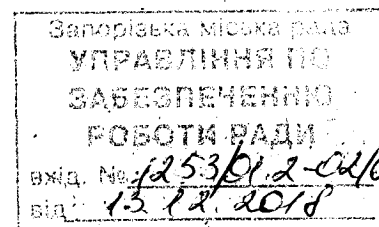 Запорізька міська рада
УПРАВЛІННЯ ПО
ЗАБЕЗПЕЧЕННЮ
РОБОТИ РАДИ
вхід. № 1253/01.2-02/
від 13.12.2018